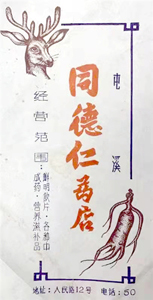 屯溪
同德仁药店
经营范围：
鲜明饮片·各种中
成药·营养滋补品
地址：人民路12号　电话：50